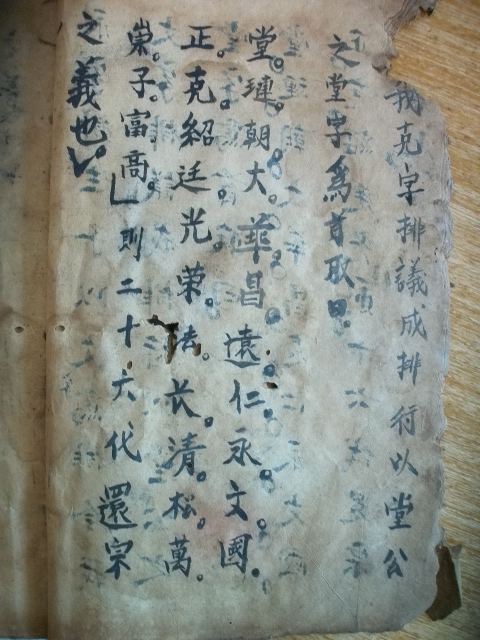 我克字排議成排行以堂公
之堂字為首取曰。
堂。璉。朝。大。華。昌。遠。仁。永。文。國。
正。克。紹。廷。光。荣。法。长。清。松。萬。
子。富。高。則二十六代還宗
之義也